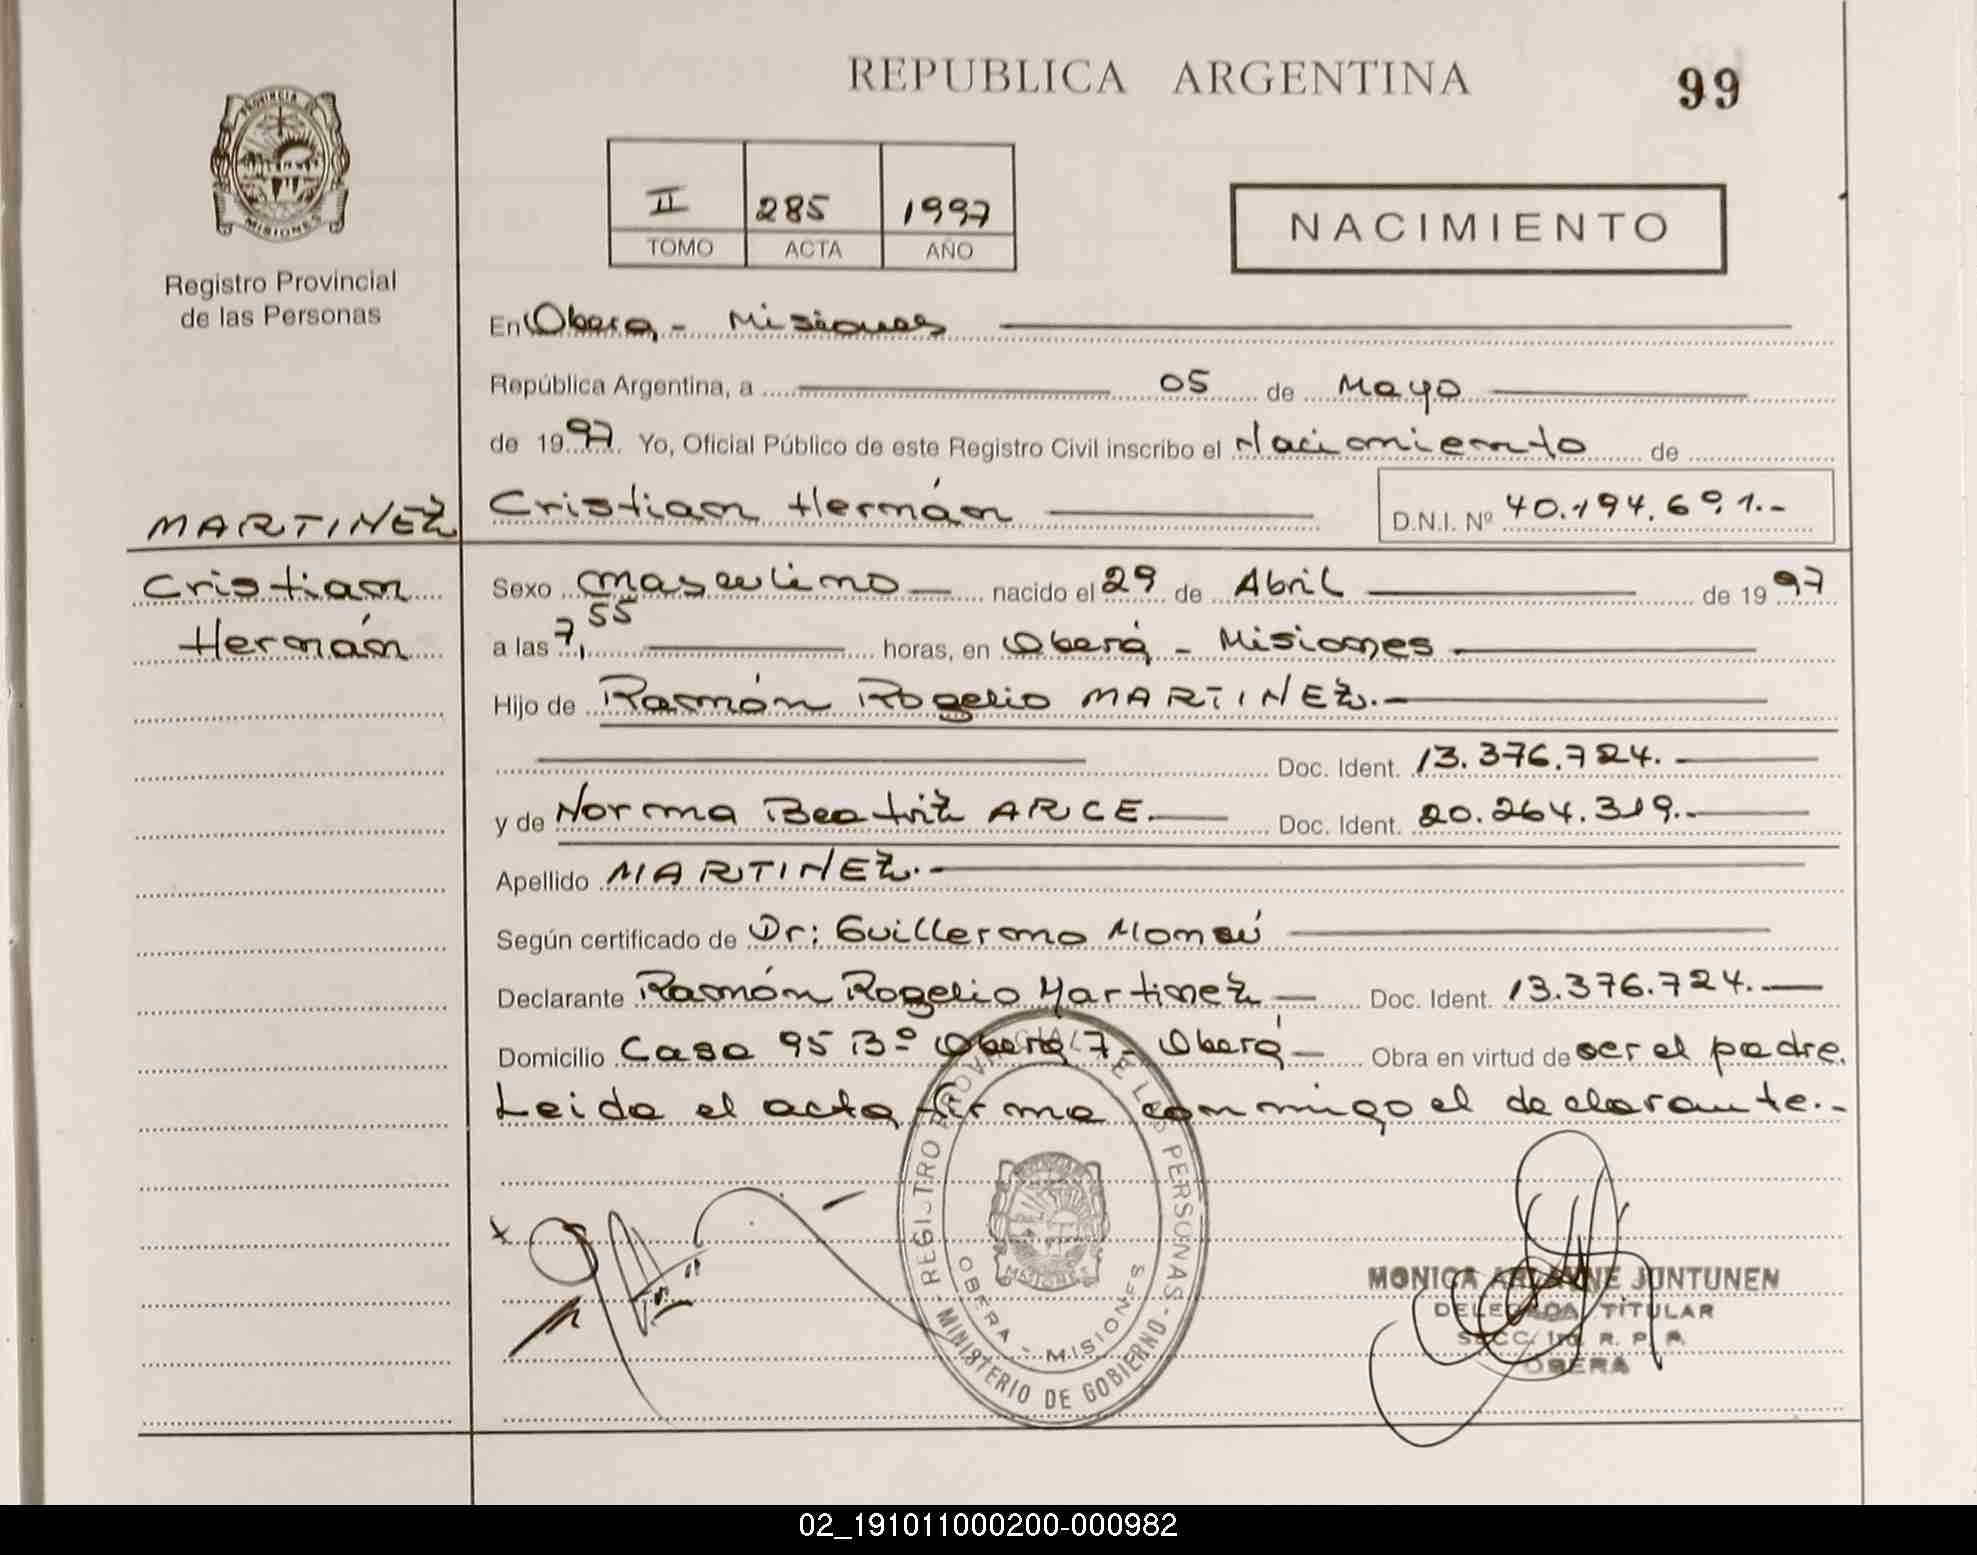 REPUBLICA ARGENTINA
99
PROVINCIA DE
MISIONES
Registro Provincial
de las Personas
II 285 1997
TOMO ACTA AÑO
NACIMIENTO
En Obera - Misiones
República Argentina, a 05 de Mayo
de 1997. Yo, Oficial Público de este Registro Civil inscribo el Nacimiento de
MARTINEZ
Cristian Hernán
Cristian Hernán D.N.I. Nº 40.194.691.-
Sexo masculino nacido el 29 de Abril de 1997
a las 7,55 horas, en Oberá - Misiones
Hijo de Ramón Rogelio MARTINEZ.-
Doc. Ident. 13.376.724.
y de Norma Beatriz ARCE. Doc. Ident. 20.264.319.-
Apellido MARTINEZ.-
Según certificado de Dr: Guillermo
Declarante Ramón Rogelio Martinez Doc. Ident. 13.376.724.
Domicilio Casa 95 Bº Oberá 7 - Oberá Obra en virtud de ser el padre.
Leida el acta firma conmigo el declarante.-
REGISTRO PROVINCIAL DE LAS PERSONAS - MINISTERIO DE GOBIERNO -
OBERA - MISIONES
MISIONES
MONICA JUNTUNEN
DELEGADA TITULAR
SECC. R. P. P.
OBERA
02_191011000200-000982